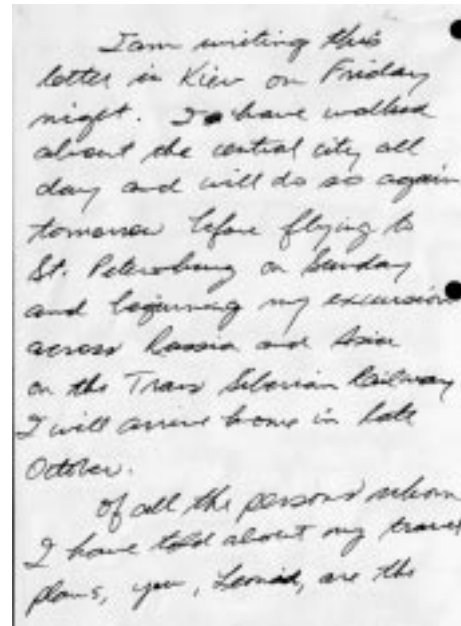 I am writing this
letter in Kiev on Friday
night. I have walked
about the central city all
day and will do so again
tomorrow before flying to
St. Petersburg on Sunday
and beginning my excursion
across Russia and Asia
on the Trans Siberian Railway
I will arrive home in late
October.
Of all the persons whom
I have told about my travel
plans, you, Leonid, are the